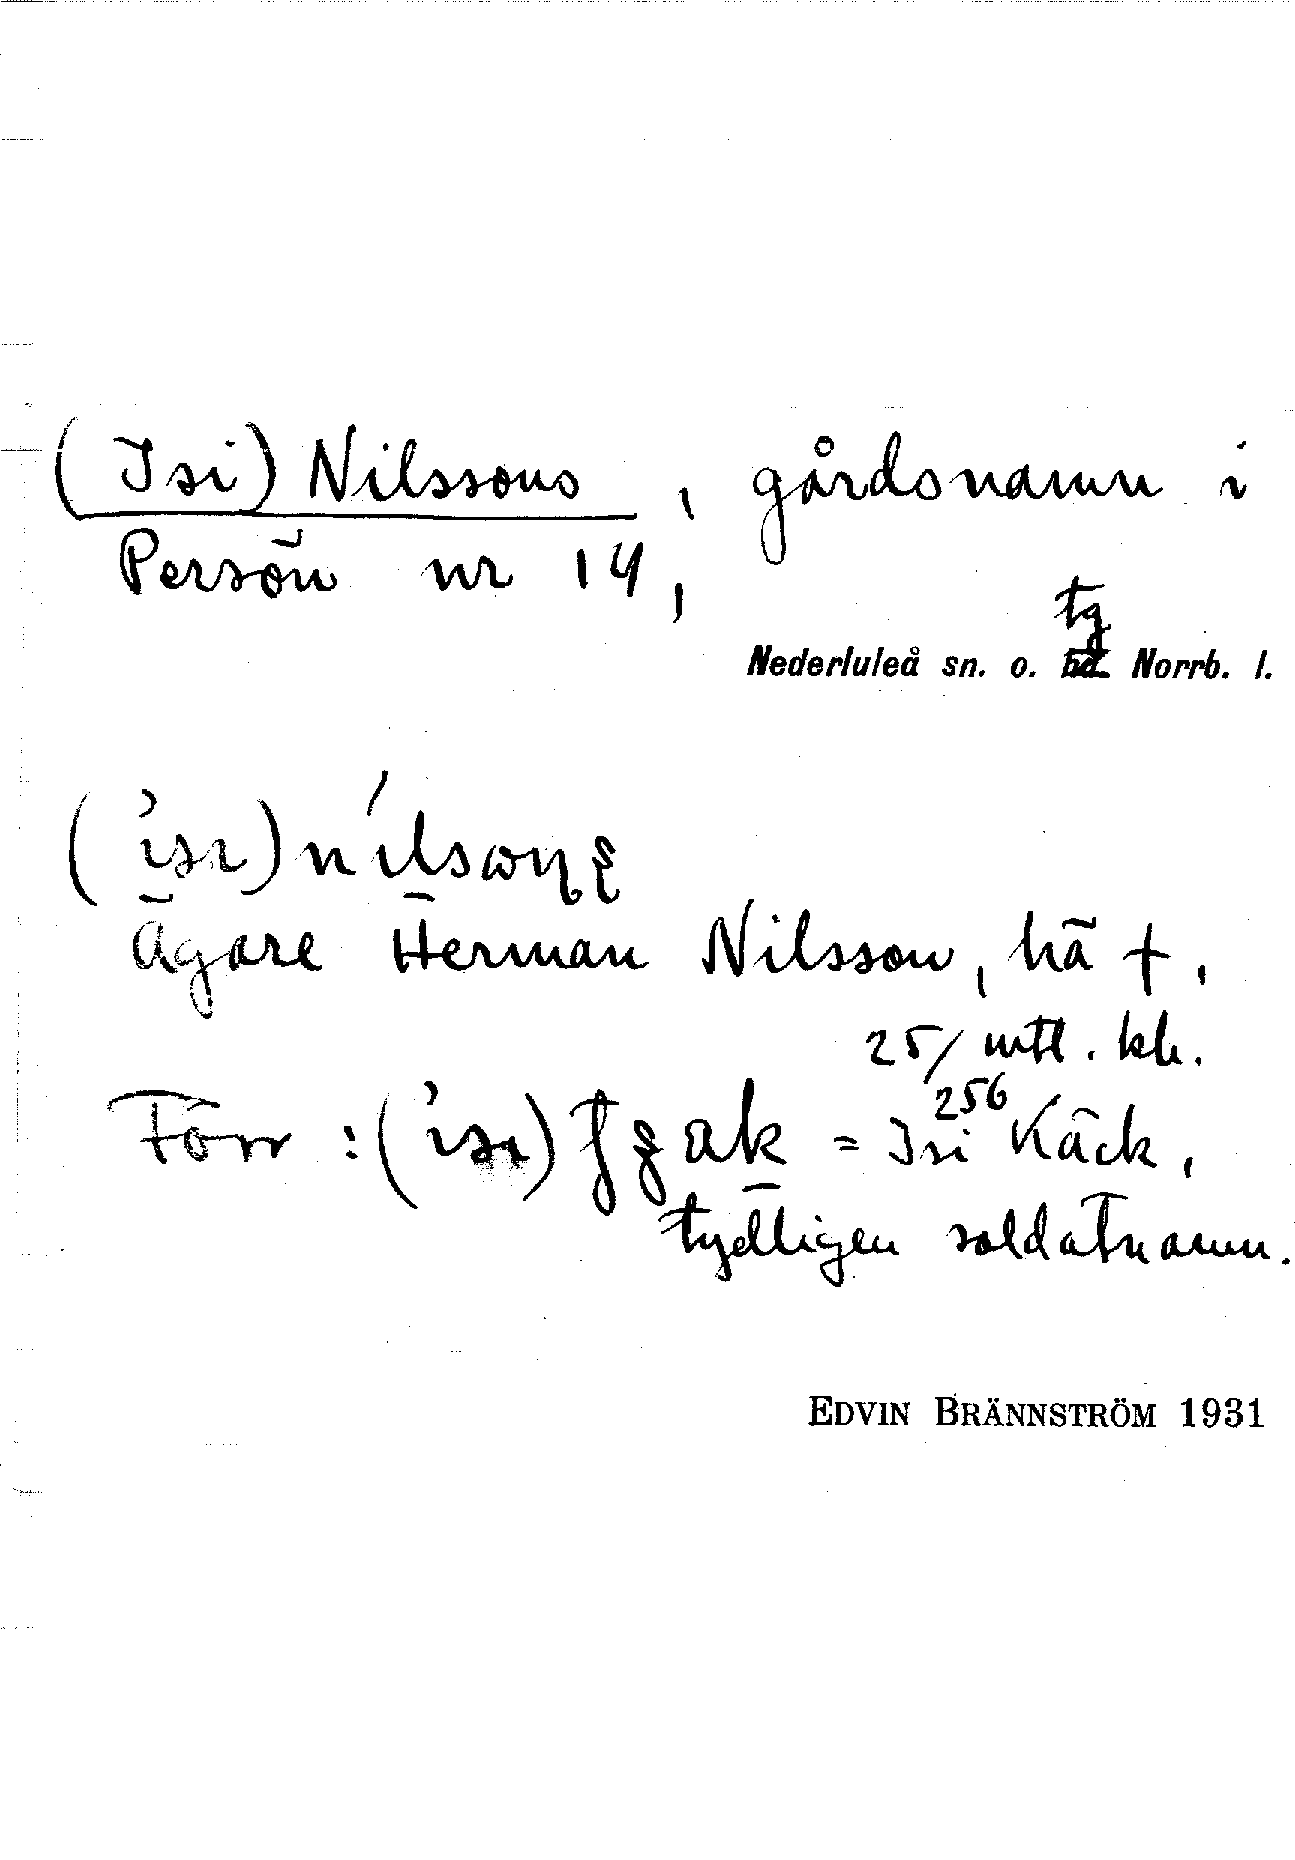 (Isi) Nilssons, gårdsnamn i
Persön nr 14,
tg
Nederluleå sn. o. Norrb. l.
(ˈisɩ)
Ägare Herman Nilsson, hä †,
25/256 mtl. kb.
Förr : (ˈisɩ) = Isi Käck,
tydligen soldatnamn.
EDVIN BRÄNNSTRÖM 1931